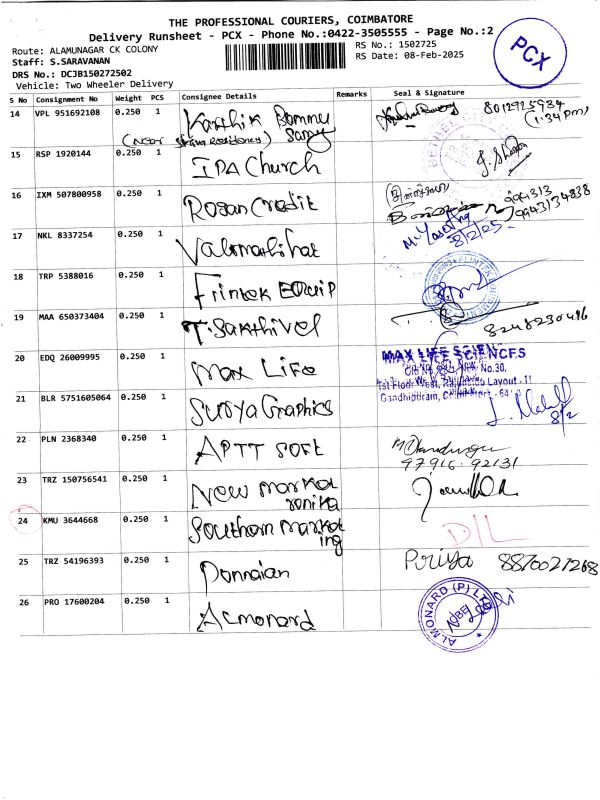 THE PROFESSIONAL COURIERS, COIMBATORE
Delivery Runsheet - PCX - Phone No.:0422-3505555 - Page No.:2
Route: ALAMUNAGAR CK COLONY
Staff: S.SARAVANAN
DRS No.: DCJB150272502
Vehicle: Two Wheeler Delivery
RS No.: 1502725
RS Date: 08-Feb-2025
PCX
S No Consignment No Weight PCS Consignee Details Remarks Seal & Signature
14 VPL 951692108 0.250 1 Karthik Bommu Samy
(Near Residency)
(1:34 pm)
15 RSP 1920144 0.250 1 IPA Church
16 IXM 507800958 0.250 1 Rosan Credit 9943134838
17 NKL 8337254 0.250 1 8/2/25
18 TRP 5388016 0.250 1 Flintek Equip
19 MAA 650373404 0.250 1 T. Sakthivel 8248230416
20 EDQ 26009995 0.250 1 Max Life MAX LIFE SCIENCES
21 BLR 5751605064 0.250 1 Surya Graphics 8/2
22 PLN 2368340 0.250 1 APTT Soft 97916-92131
23 TRZ 150756541 0.250 1 New Market
24 KMU 3644668 0.250 1 Southern Marketing D/L
25 TRZ 54196393 0.250 1 Ponnaian Piriya 8870027268
26 PRO 17600204 0.250 1 Almonard ALMONARD (P) LTD